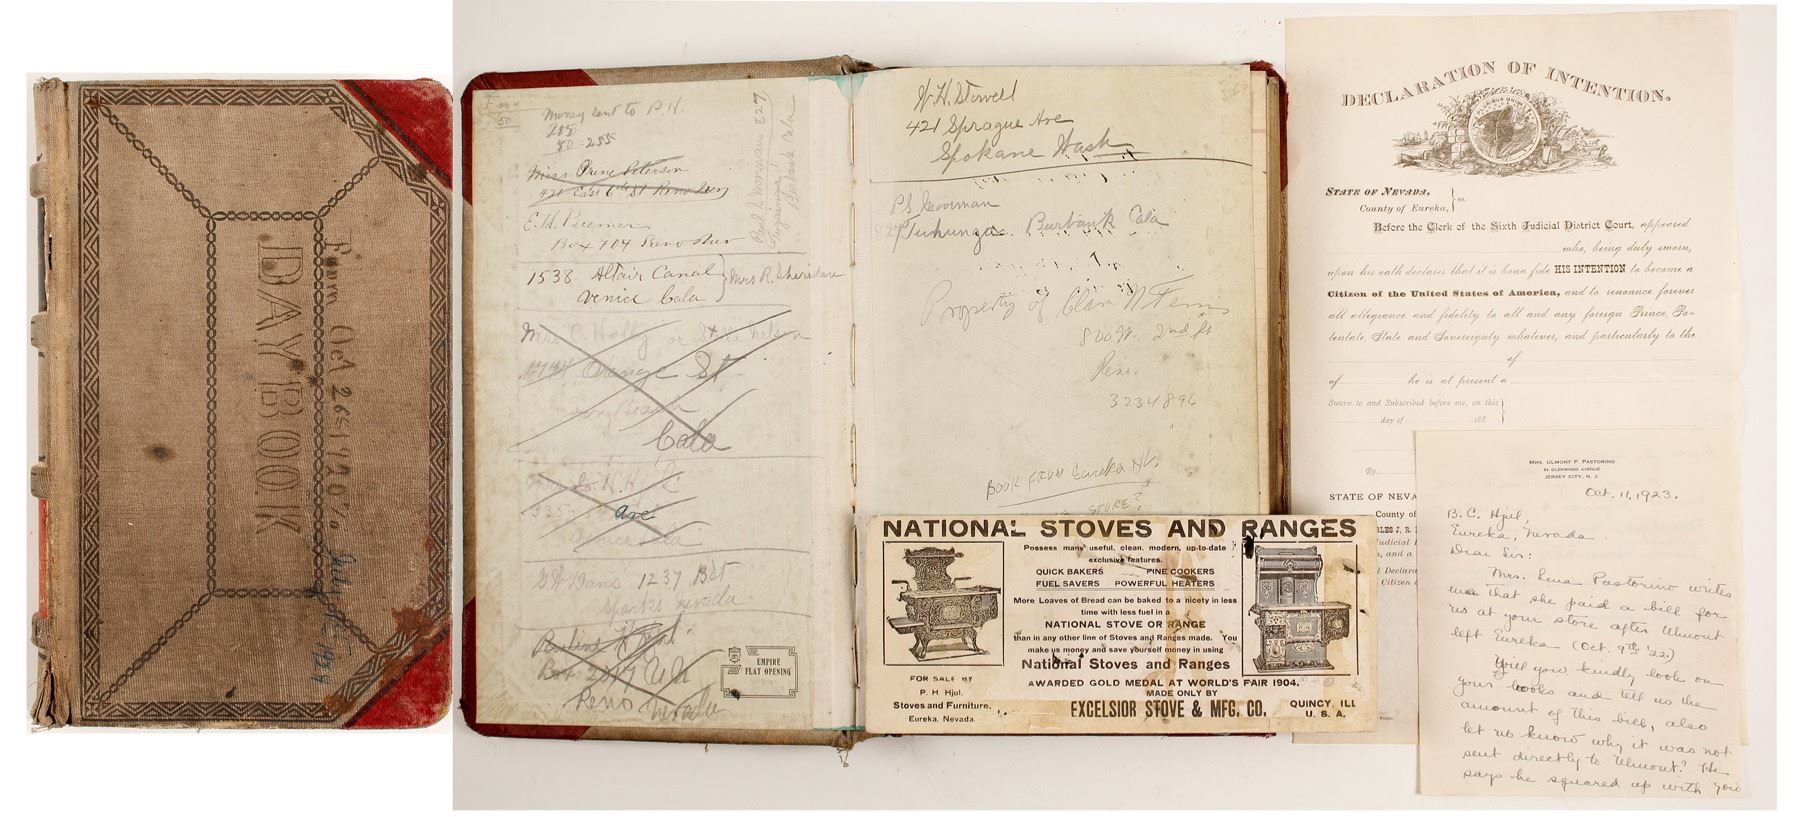 DAY BOOK
From Oct 26th 1920 to
July 1st 1924
50
Money sent to P.H.
205
50 = 255
Miss
421 East 6th St Reno Nev
E.H. Biemer
Box 704 Reno Nev
Burbank Cala
827
1538 Altair Canal
Venice Cala
Mrs R. Sheridan
Mrs C Holly or Stella Nelson
Orange St
Long Beach
Cala
335
Ave
Venice Cala
1237 B St
Sparks Nevada
Pauline Hjul.
Box 2017
Reno Nevada
EMPIRE
FLAT OPENING
W.H. Stowell
421 Sprague Ave
Spokane Wash
P.S. Moorman
827 Tuhunga Burbank Cala
Property of
800 W. 2nd St
Reno.
3234896
BOOK FROM Eureka NV.
STORE?
NATIONAL STOVES AND RANGES
Possess many useful, clean, modern, up-to-date
exclusive features.
QUICK BAKERS PINE COOKERS
FUEL SAVERS POWERFUL HEATERS
More Loaves of Bread can be baked to a nicety in less
time with less fuel in a
NATIONAL STOVE OR RANGE
than in any other line of Stoves and Ranges made. You
make us money and save yourself money in using
National Stoves and Ranges
AWARDED GOLD MEDAL AT WORLD'S FAIR 1904.
MADE ONLY BY
EXCELSIOR STOVE & MFG. CO. QUINCY, ILL
U. S. A.
FOR SALE BY
P. H. Hjul.
Stoves and Furniture.
Eureka, Nevada.
DECLARATION OF INTENTION.
STATE OF NEVADA,
County of Eureka, } ss.
Before the Clerk of the Sixth Judicial District Court, appeared
who, being duly sworn,
upon his oath declares that it is bona fide HIS INTENTION to become a
Citizen of the United States of America, and to renounce forever
all allegiance and fidelity to all and any foreign Prince, Po-
tentate, State and Sovereignty whatever, and particularly to the
of
of he is at present a
Sworn to and Subscribed before me, on this
day of 188
By
STATE OF NEVA
County of
Judicial
, and a
Declara
Citizen
MRS. ULMONT P. PASTORINO
GLENWOOD AVENUE
JERSEY CITY, N. J.
Oct. 11, 1923.
B. C. Hjul,
Eureka, Nevada
Dear Sir:
Mrs. Lena Pastorino writes
me that she paid a bill for
us at your store after Ulmont
left Eureka (Oct. 9th '22.)
Will you kindly look on
your books and tell us the
amount of this bill, also
let us know why it was not
sent directly to Ulmont? He
says he squared up with you